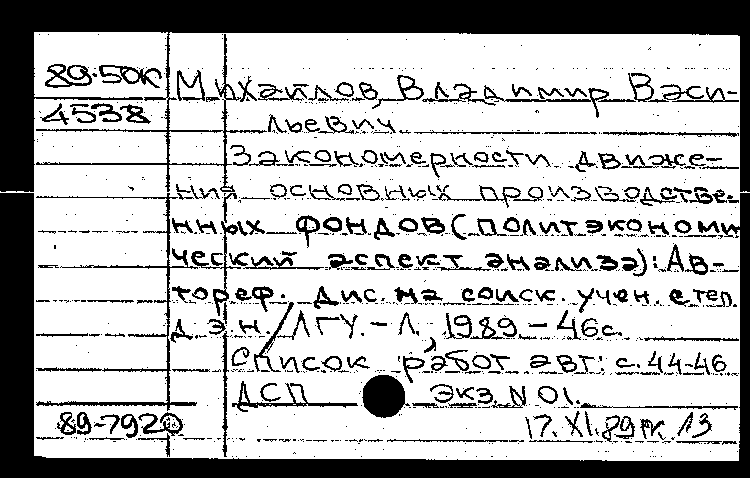 89-50К Михайлов, Владимир Васи-
4538 льевич.
Закономерности движе-
ния основных производстве-
нных фондов (политэкономи
ческий аспект анализа): Ав-
тореф. дис. на соиск. учен. степ.
д. э. н. / ЛГУ. - Л., 1989 - 46с.
Список работ авт: с. 44-46
ДСП Экз. N 01.
89-7920 17. XI. 89 РК 13